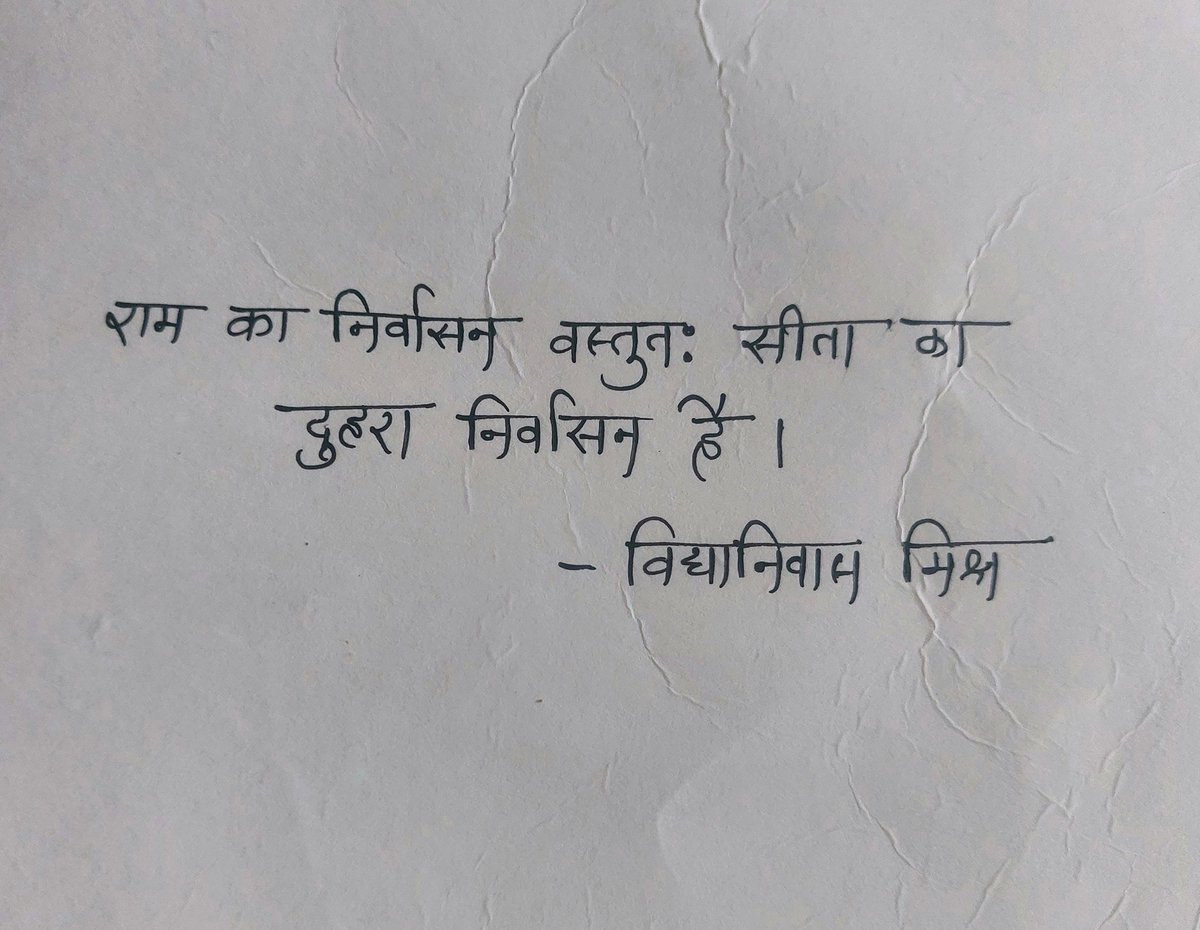 राम का निर्वासन वस्तुतः सीता का
दुहरा निर्वासन है ।
- विद्यानिवास मिश्र